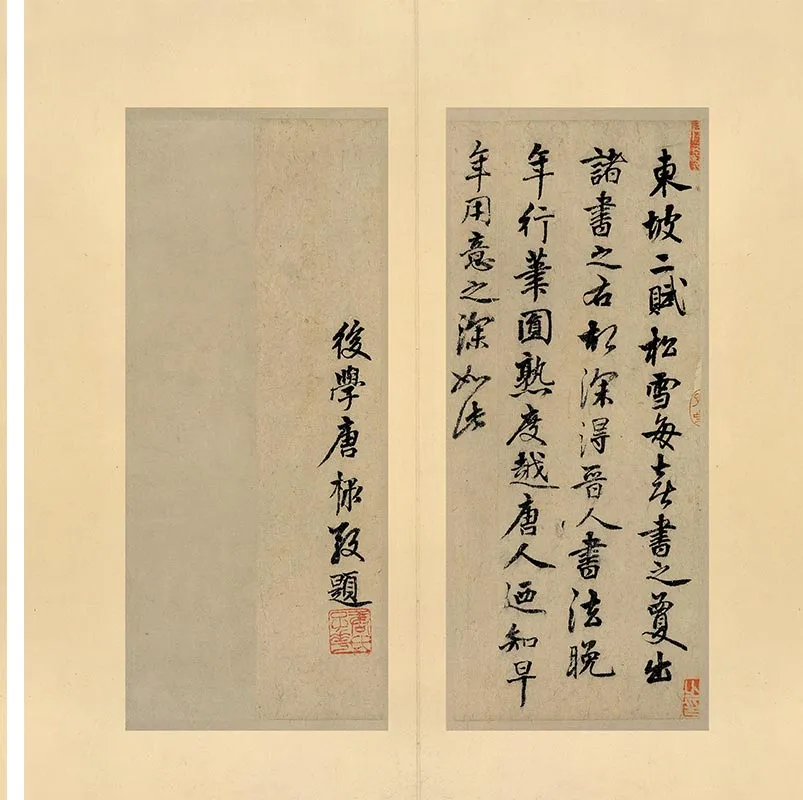 東坡二賦松雪每喜書之夐出
諸書之右初深得晉人書法晚
年行筆圓熟度越唐人迺知早
年用意之深如此
後學唐棣敬題
唐氏子華